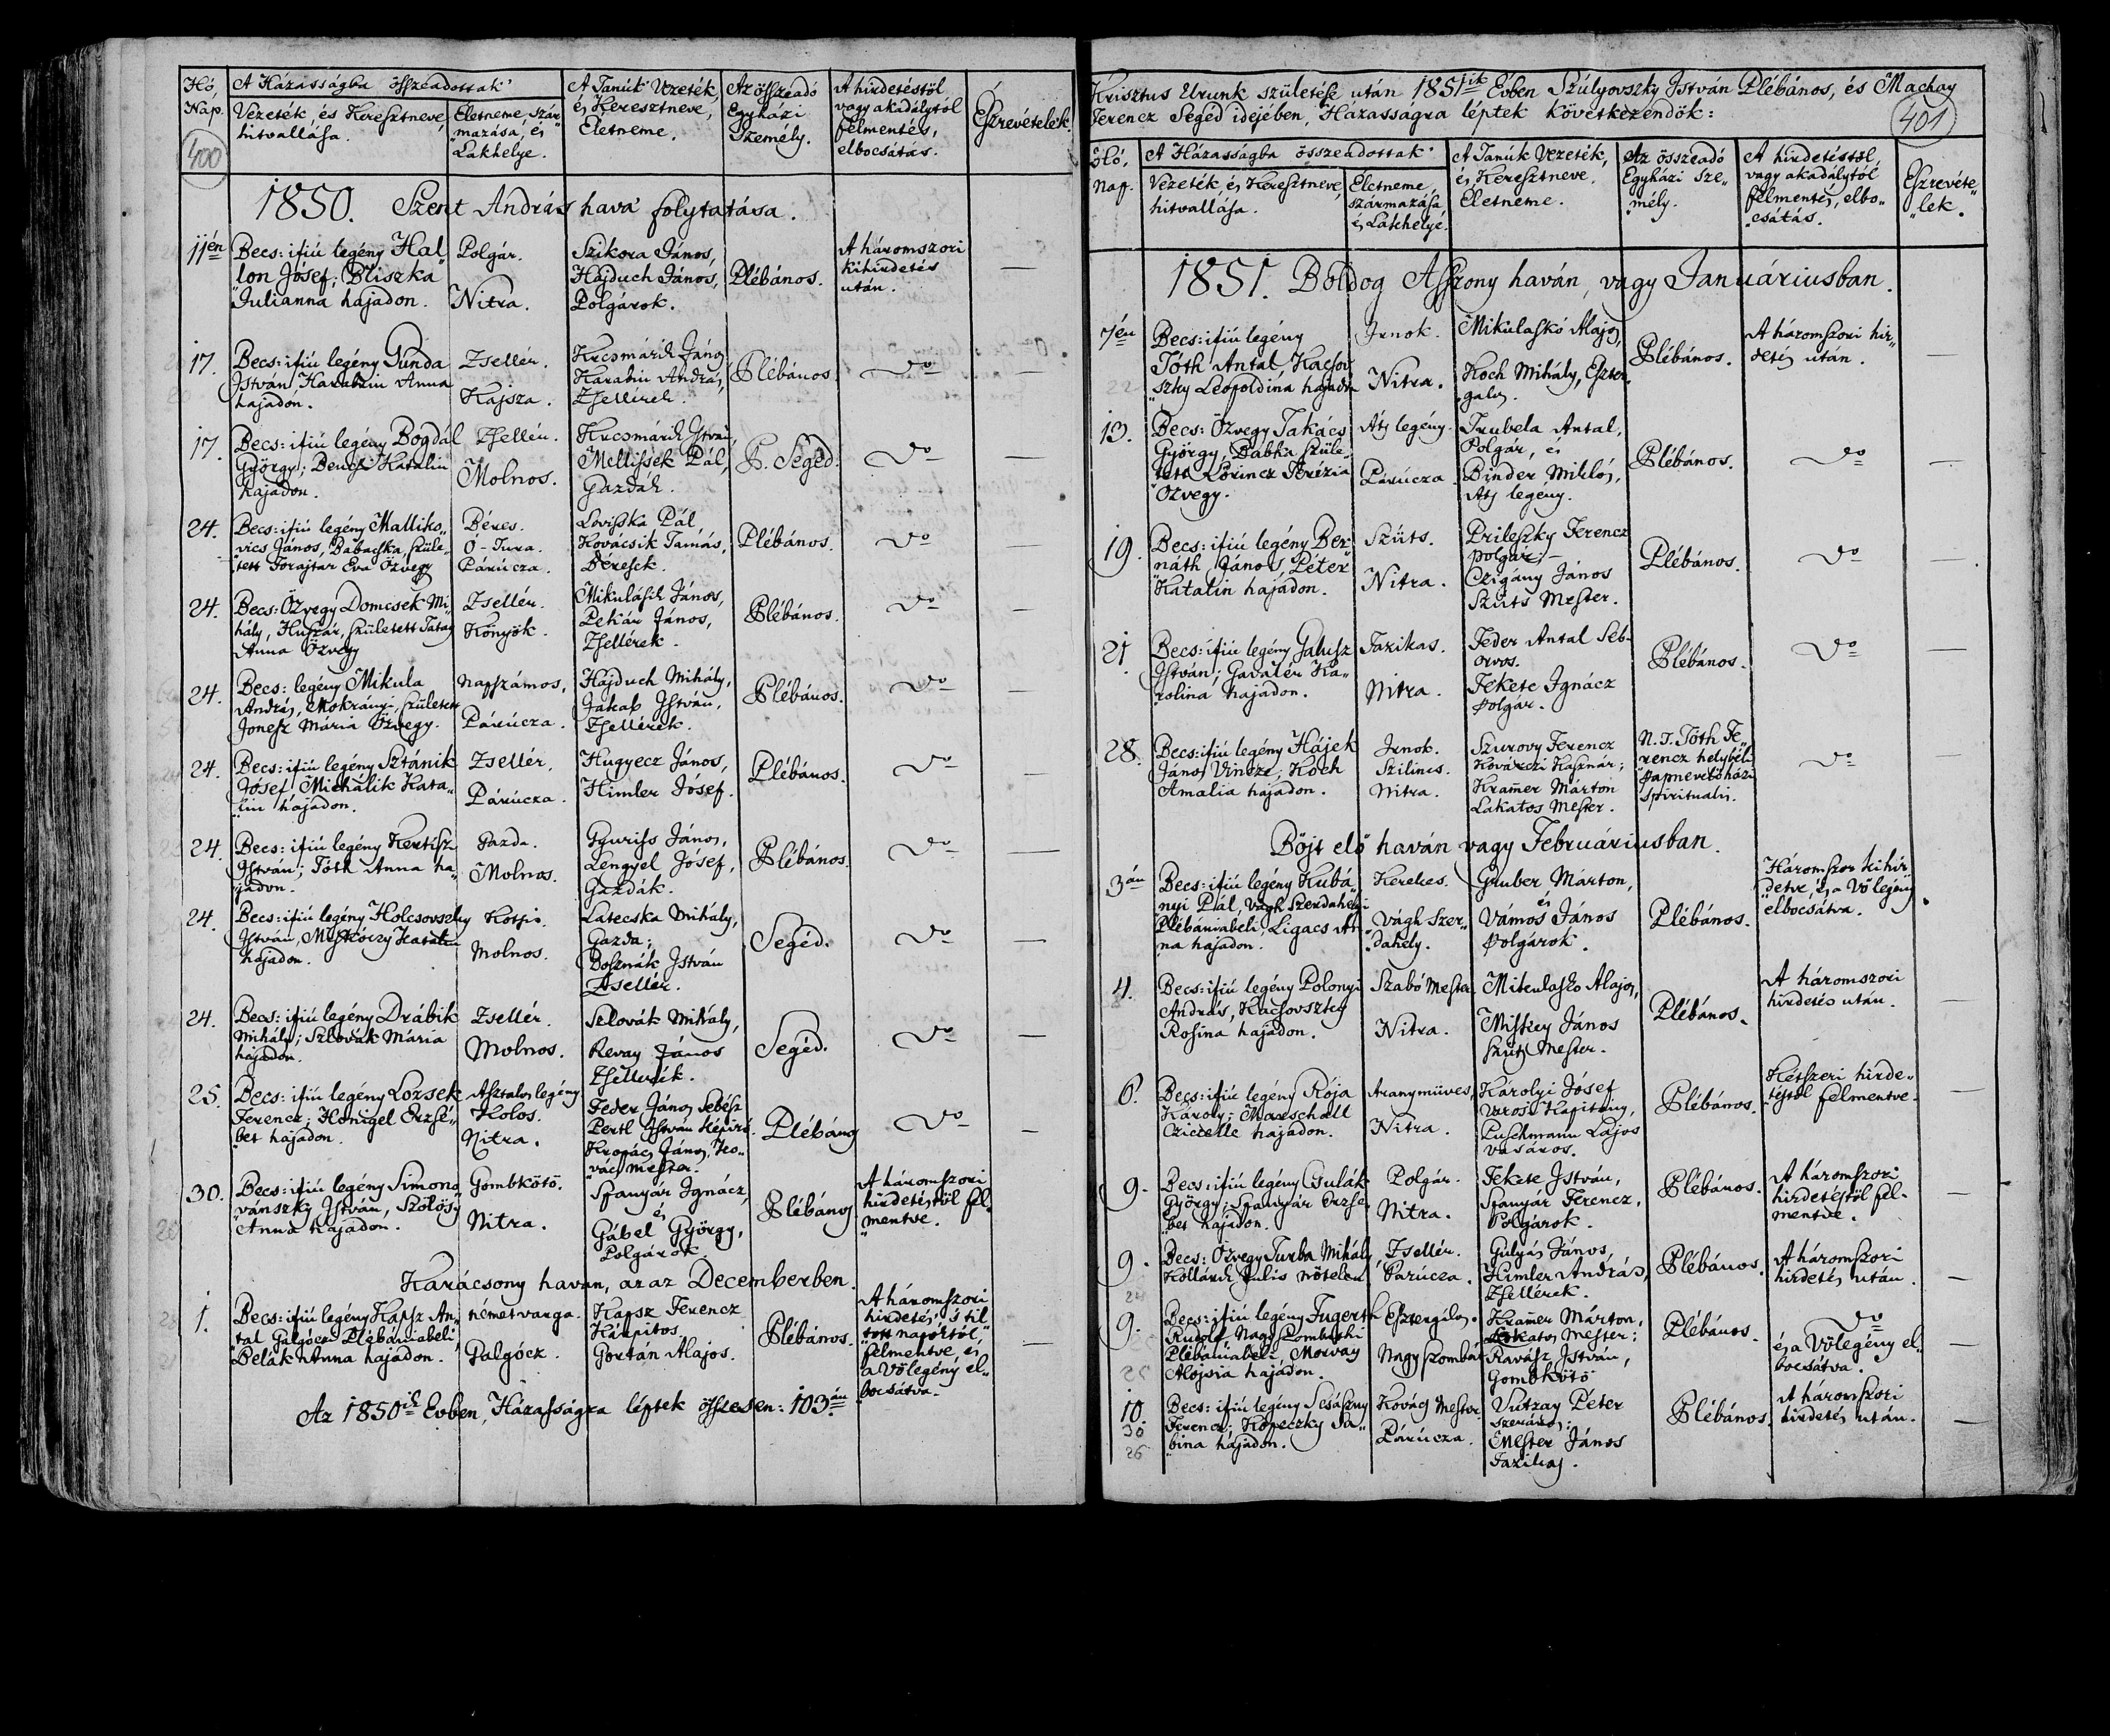 Hó,
Nap.
400
A Házasságba öszszeadottak'
Vezeték, és Keresztneve,
hitvallása.
Életneme, Szár„
mazása, és
Lakhelye.
A Tanúk Vezeték,
és Keresztneve,
Életneme.
Az öszszeadó
Egyházi
Személy.
A hirdetéstöl
vagy akadálytól
felmentés,
elbocsátás.
Észrevételek.
1850. Szent András hava folytatása.
11én
Becs: ifiú legény Hal„
lon Jósef; Bliszka
Julianna hajadon.
Polgár.
Nitra.
Szikora János,
Hajduch János,
Polgárok.
Plébános.
A háromszori
kihirdetés
után.
17.
Becs: ifiú legény Gunda
István, Karabin Anna
hajadon.
Zsellér.
Kajsza.
Krcsmárik János,
Karabin András,
Zsellérek.
Plébános.
Do
17.
Becs: ifiú legény Bogdál
György; Katalin
hajadon.
Zsellér.
Molnos.
Krcsmárik István,
Mellissek Pál,
Gazdák.
P. Segéd.
Do
24.
Becs: ifiú legény Malliko„
vics János, Babacska, szüle„
tett Forajtar Eva Özvegy
Béres.
Ó-Tura.
Párúcza.
Lovisska Pál,
Kovácsik Tamás,
Béresek.
Plébános.
Do
24.
Becs: Özvegy Domcsek Mi
hály, Huszár, született Tatay
Anna Özvegy
Zsellér.
Könyök.
Mikulásik János,
Pekár János,
Zsellérek.
Plébános.
Do
24.
Becs: legény Mikula
András, Mokrányi, született
Jonesz Mária Özvegy.
Napszámos,
Párúcza.
Hajduch Mihály,
Jakab István,
Zsellérek.
Plébános.
Do
24.
Becs: ifiú legény Sztánik
Jósef Michálik Kata„
lin hajadon.
Zsellér,
Párúcza.
Hugyecz János,
Himler Jósef.
Plébános.
Do
24.
Becs: ifiú legény Kertisz
István; Tóth Anna ha„
jadon.
Gazda.
Molnos.
Gyuriss János,
Lengyel Jósef,
Gazdák.
Plébános.
Do
24.
Becs: ifiú legény Holcsovszky
István, Katalin
hajadon.
Molnos.
Latecska Mihály,
Gazda;
Bosznák István
Zsellér.
Segéd.
Do
24.
Becs: ifiú legény Drábik
Mihály; Szlovák Mária
hajadon.
Zsellér.
Molnos.
Selovák Mihály,
Revay János
Zsellerék.
Segéd.
Do
25.
Becs: ifiú legény Lozsek
Ferencz; Honigel Erzsé„
bet hajadon.
Asztalos legény
Kolos.
Nitra.
Feder János Sebész
Pertl István Képiró.
Kropács János, Ko„
vács mester.
Plébános
Do
30.
Becs: ifiú legény Simono„
vánszky István, Szölösy
Anna hajadon.
Gombkötö.
Nitra.
Spanyár Ignácz,
és
Gábel György,
Polgárok.
Plébános
A háromszori
hirdetéstöl fel„
mentve.
Karácsony havan, azaz Decemberben.
1.
Becs: ifiú legény Kapsz An„
tal Galgóczi Plébániabeli
Pélák Anna hajadon.
németvarga.
Galgócz.
Kapsz Ferencz
Kárpitos,
Gortán Alajos.
Plébános.
A háromszori
hirdetés, 's til„
tott napoktól,
felmentve, és
a Völegény el„
bocsátva.
Az 1850ik Évben, Házasságra léptek öszszesen: 103án
Krisztus Urunk születése után 1851ik Évben Szúlyovszky István Plébános, és Machay
Ferencz Segéd idejében, Házasságra léptek következendök:
401
Hó,
Nap.
A Házasságba összeadottak'
Vezeték, és Keresztneve,
hitvallása.
Életneme,
származása
és Lakhelye.
A Tanúk Vezeték,
és Keresztneve.
Életneme.
Az összeadó
Egyházi Sze„
mély.
A hirdetéstöl,
vagy akadálytól
felmentés, elbo„
csátás.
Észrevéte„
lek.
1851. Boldog Aszszony haván, vagy Januáriusban.
7én
Becs: ifiú legény
Tóth Antal, Kacsov
szky Leopoldina hajadon
Irnok.
Nitra.
Mikulaskó Alajos,
Koch Mihály, Eszter„
galos.
Plébános.
A háromszori hir„
detés után.
13.
Becs: Özvegy Takács
György, Babka szüle„
tett Lörincz Terézia
Özvegy.
Ács legény.
Párúcza.
Trubela Antal,
Polgár, és
Binder Miklós,
Ács legény.
Plébános.
Do
19.
Becs: ifiú legény Ber„
náth János, Péter
Katalin hajadon.
Szüts.
Nitra.
Prileszky Ferencz
polgár;
Czigány János
Szüts Mester.
Plébános.
Do
21
Becs: ifiú legény Galusz
István; Gavalér Ka„
rolina hajadon.
Fazikas.
Nitra.
Feder Antal Seb-
orvos.
Fekete Ignácz
polgár.
Plébános.
Do
28.
Becs: ifiú legény Hájek
János Vincze; Koch
Amalia hajadon.
Irnok.
Szilincs.
Nitra.
Szurovy Ferencz
Kovárczi Kasznár;
Kramer Márton
Lakatos Mester.
N.T. Tóth Fe„
rencz helybéli
papnevelőházi
spiritualis.
Do
Böjt elő haván vagy Februáriusban.
3án
Becs: ifiú legény Kubá
nyi Pál, Vágh Szerdahelyi
Plébániabeli, Ligacs An
na hajadon.
Kerekes.
Vágh Szer„
dahely.
Gruber Márton,
és
Vámos János
Polgárok.
Plébános.
Háromszor kihir„
detve, és a Völegény
elbocsátva.
4.
Becs: ifiú legény Polonyi
András, Kacsovszky
Rosina hajadon.
Szabó Mester.
Nitra.
Mikulaszko Alajos,
Misskey János
Szüts Mester.
Plébános.
A háromszori
hirdetés után.
6.
Becs: ifiú legény Rója
Károly; Marschall
Cziczelle hajadon.
Aranymüves,
Nitra.
Károlyi Jósef
Városi Kapitány,
Puschmann Lajos
vasáros.
Plébános.
Kétszeri hirde„
téstöl felmentve.
9.
Becs: ifiú legény Gulák
György; Spanyár Erzsé„
bet hajadon.
Polgár.
Nitra.
Fekete István,
Spanyár Ferencz,
Polgárok.
Plébános.
A háromszori
hirdetéstöl fel-
mentve.
9.
Becs: Özvegy Turba Mihály,
Kollárik Julis nötelen
Zsellér.
Párúcza.
24
Gulyás János,
Himler András,
Zsellérek.
Plébános.
A háromszori
hirdetés után.
9.
Becs: ifiú legény Fugerth
Rudolf Nagy Szombathi
Plébániabeli, Morvay
Alojsia hajadon.
Esztergálos.
Nagyszombat
25
Kramer Márton,
Lakatos Mester;
Ravász István,
Gombkötö
Plébános.
Do
és a Völegény el„
bocsátva.
10.
30
26
Becs: ifiú legény
Ferencz; Kopeczky Sa„
bina hajadon.
Kovács Mester.
Párúcza.
Vutzay Péter
Mester János
Fazikas.
Plébános.
A háromszori
hirdetés után.